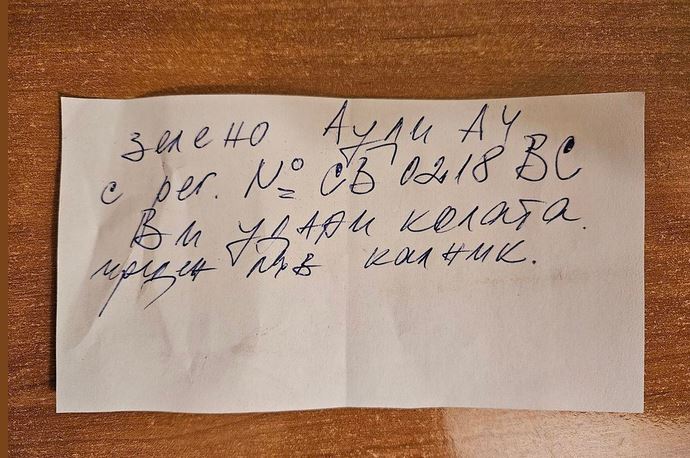 зелено Ауди А4
с рег. № СВ 0218 ВС
Ви удари колата.
преден ляв калник.